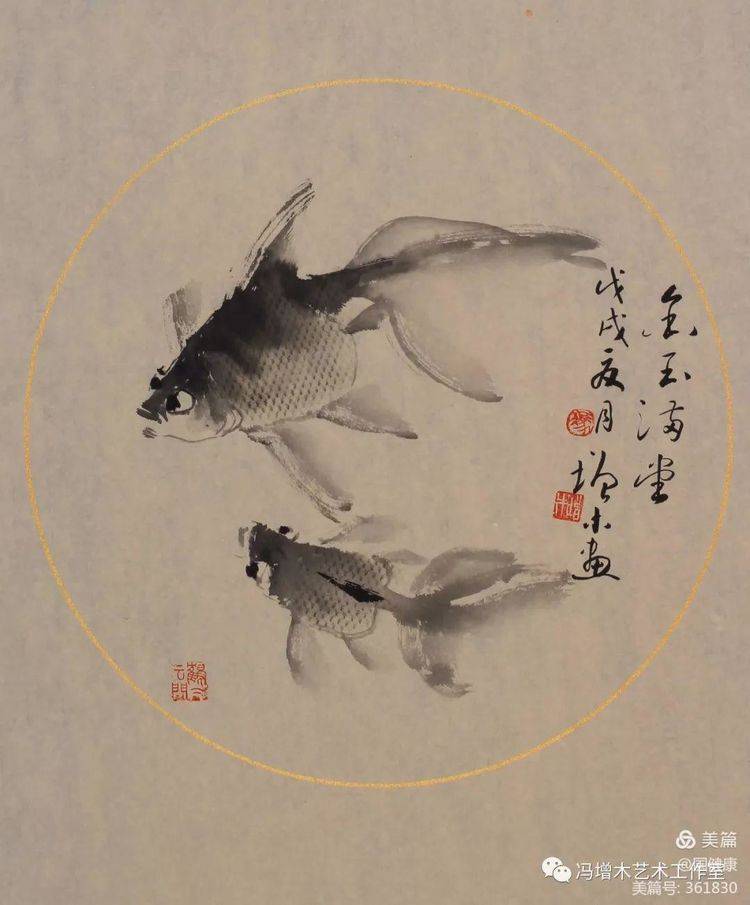 金玉满堂
戊戌夏月
增木画
美篇
冯增木艺术工作室
美篇号: 361830